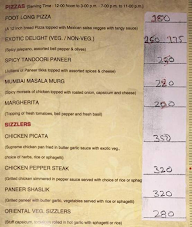 PIZZAS Serving Time : 12:00 Noon to 3:00 p.m. - 7.00 p.m. to 11.00 p.m.)
FOOT LONG PIZZA 350
(A 12 foot bread Pizza topped with Mexican salsa veggies with tangy sauce)
EXOTIC DELIGHT (VEG. / NON-VEG.) 260 275
(Spicy peppers, assorted bell pepper & olives)
SPICY TANDOORI PANEER 260
(Tandoor or Paneer tikka topped with assorted spices & cheese)
MUMBAI MASALA MURG 280
(Spicy morsels of chicken topped with coated onion, capsicum and cheese)
MARGHERITA 290
(Topping of fresh tomatoes, bell pepper and fresh basil)
SIZZLERS
CHICKEN PICATA 350
(Supreme chicken pan fried in butter garlic sauce with exotic veg.,
choice of herbs, rice or spaghetti)
CHICKEN PEPPER STEAK 320
(Grilled chicken simmered in pepper sauce served with choice of rice or spaghetti)
PANEER SHASLIK 320
(Grilled paneer with butter garlic, vegetables served with rice or spaghetti)
ORIENTAL VEG. SIZZLERS 280